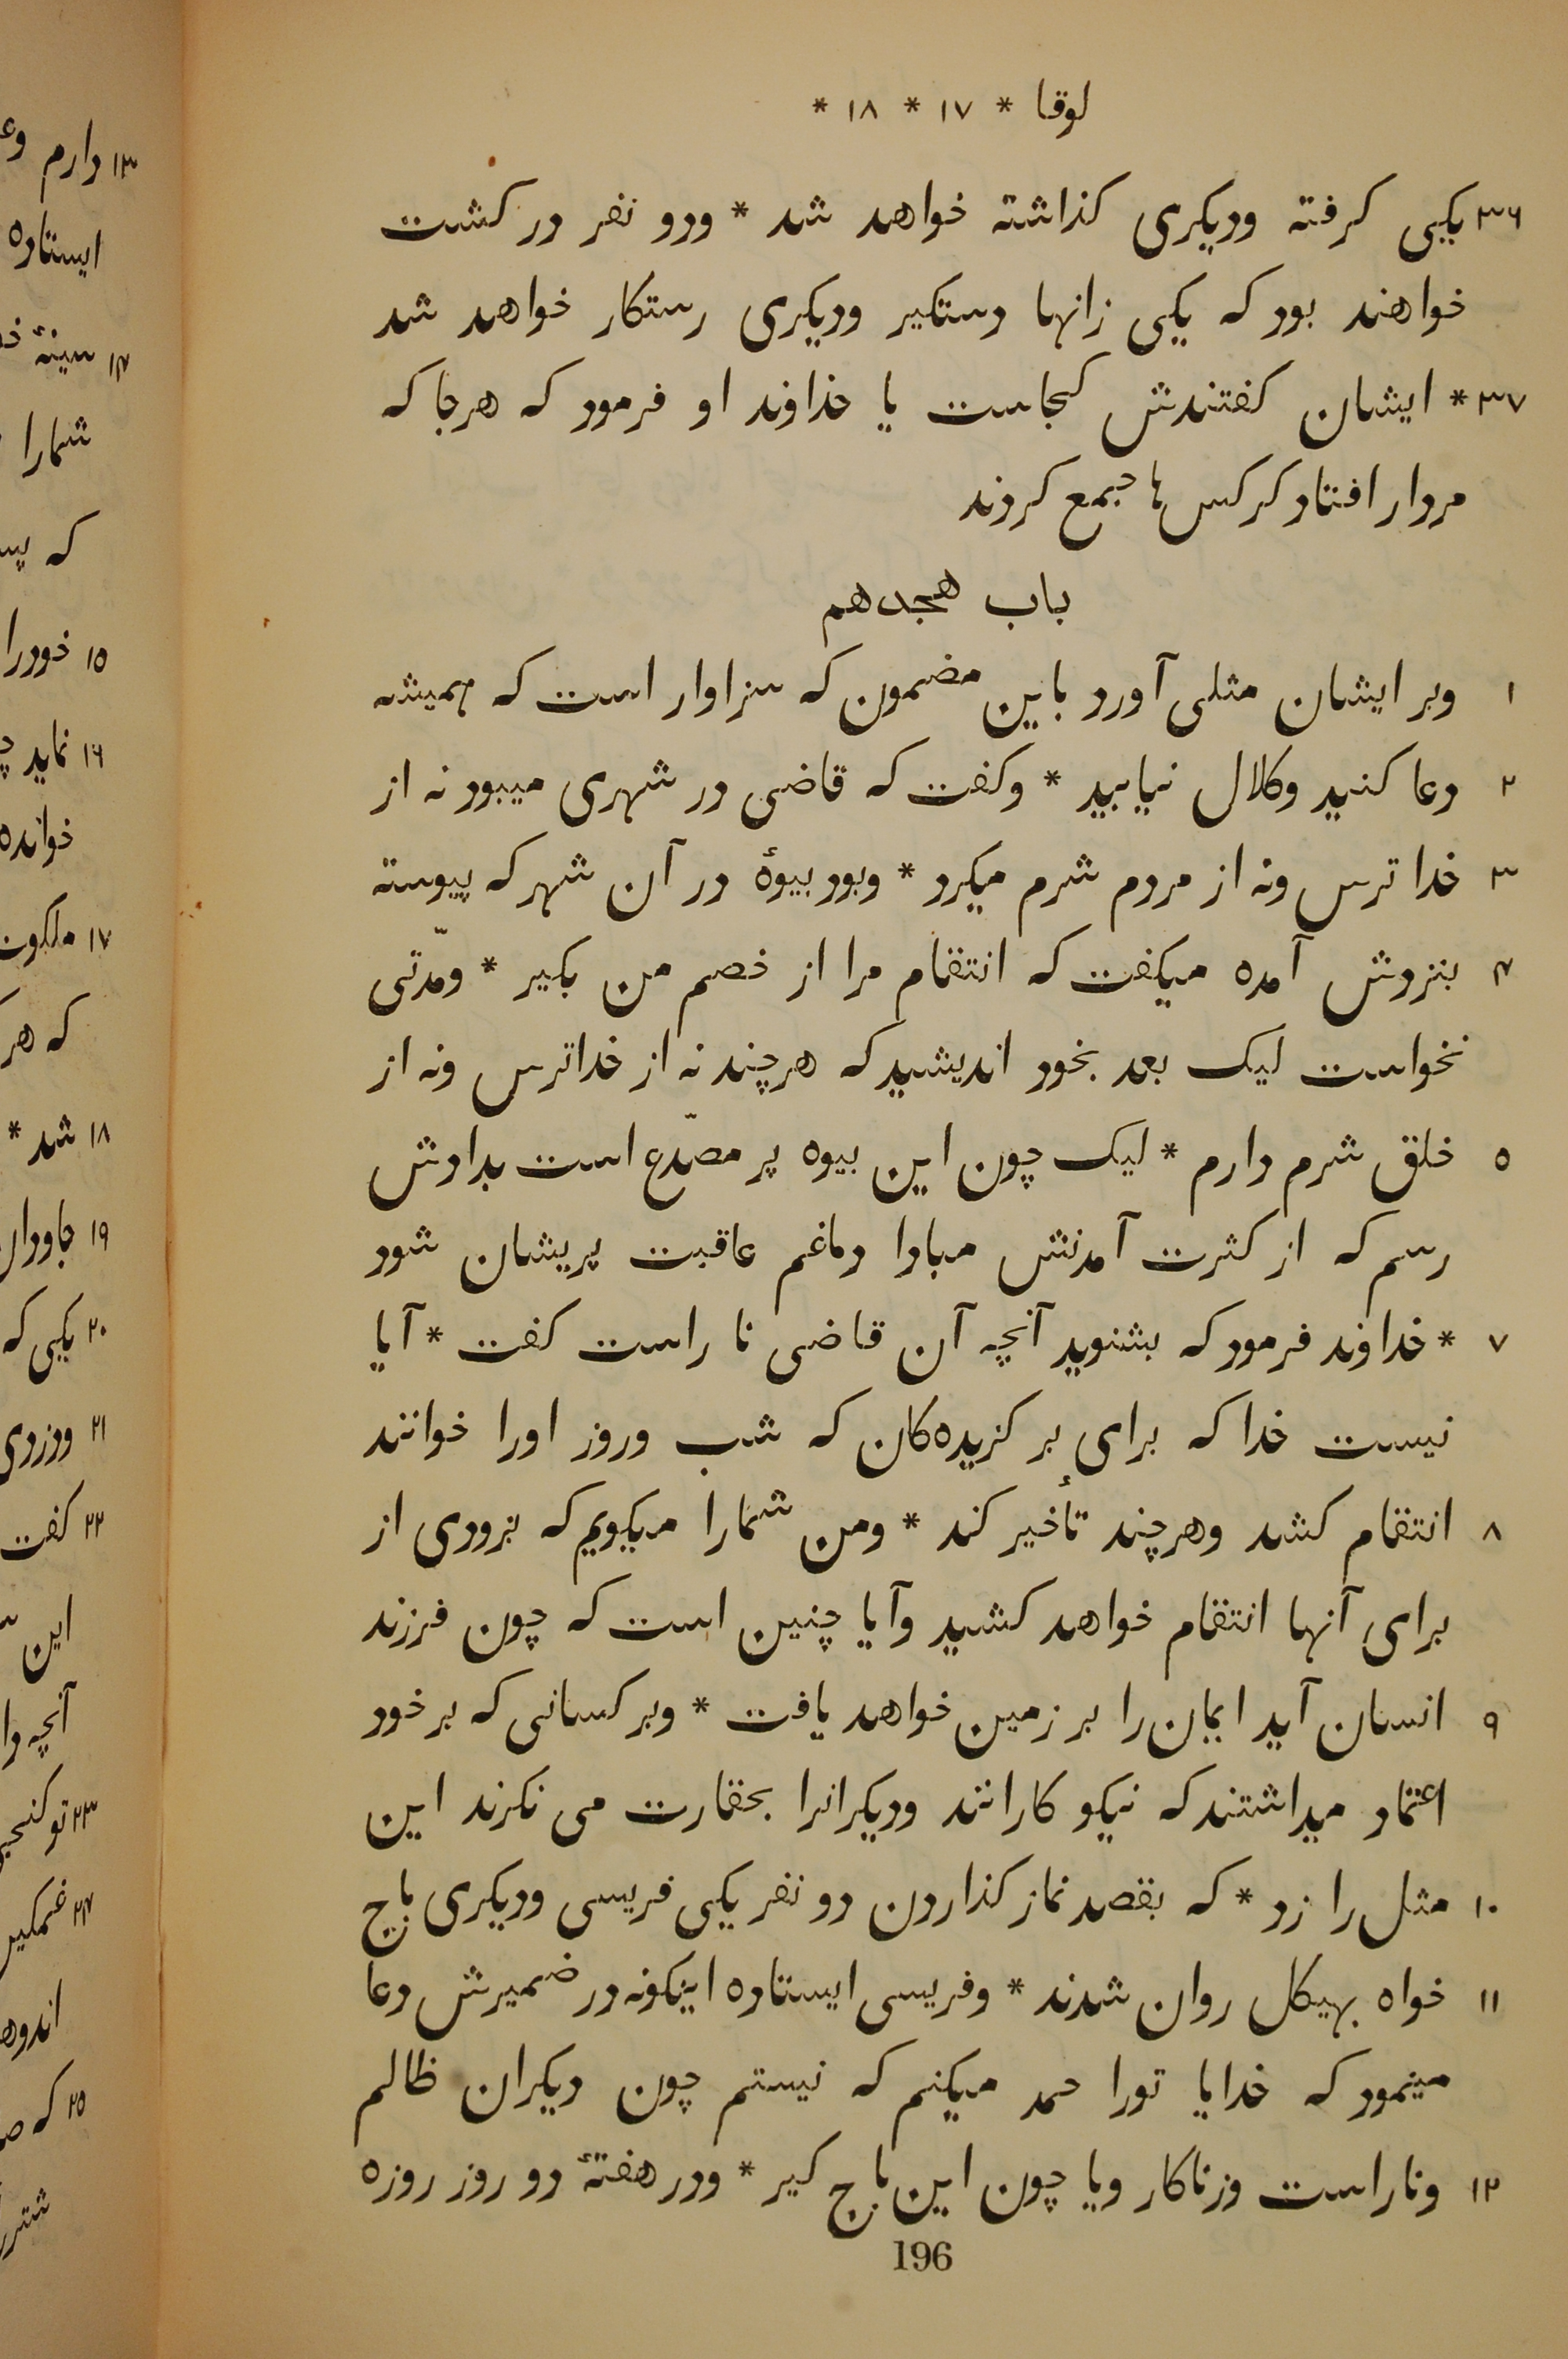 لوقا * ۱۷ * ۱۸ *
۳۶ یکی کرفته ودیکری کذاشته خواهد شد * ودو نفر در کشت
خواهند بود که یکی زانها دستکیر ودیکری رستکار خواهد شد
۳۷ * ایشان کفتندش کجاست یا خداوند او فرمود که هرجا که
مردار افتاد کرکس ها جمع کردند
باب هجدهم
۱ وبر ایشان مثلی آورد باین مضمون که سزاوار است که همیشه
۲ دعا کنید وکلال نیابید * وکفت که قاضی در شهری میبود نه از
۳ خدا ترس ونه از مردم شرم میکرد * وبود بیوهٔ در آن شهر که پیوسته
۴ بنزدش آمده میکفت که انتقام مرا از خصم من بکیر * ومدّتی
نخواست لیک بعد بخود اندیشید که هرچند نه از خداترس ونه از
۵ خلق شرم دارم * لیک چون این بیوه پر مصدّع است بدادش
رسم که از کثرت آمدنش مبادا دماغم عاقبت پریشان شود
۷ * خداوند فرمود که بشنوید آنچه آن قاضی نا راست کفت * آیا
نیست خدا که برای بر کزیده‌کان که شب وروز اورا خوانند
۸ انتقام کشد وهرچند تأخیر کند * ومن شمارا میکویم که بزودی از
برای آنها انتقام خواهد کشید وآیا چنین است که چون فرزند
۹ انسان آید ایمان را بر زمین خواهد یافت * وبر کسانی که بر خود
اعتماد میداشتند که نیکو کارانند ودیکرانرا بحقارت می نکرند این
۱۰ مثل را زد * که بقصد نماز کذاردن دو نفر یکی فریسی ودیکری باج
۱۱ خواه بهیکل روان شدند * وفریسی ایستاده اینکونه در ضمیرش دعا
مینمود که خدایا تورا حمد میکنم که نیستم چون دیکران ظالم
۱۲ ونا راست وزناکار ویا چون این باج کیر * ودر هفتهٔ دو روز روزه
196
۱۳ دارم
ایستاده
۱۴ سینهٔ
شمارا
که
۱۵ خودرا
۱۶ نماید
خوانده
۱۷
که هر
۱۸ شد *
۱۹
۲۰ یکی که
۲۱
۲۲ کفت
این
آنچه
۲۳
۲۴
۲۵ که